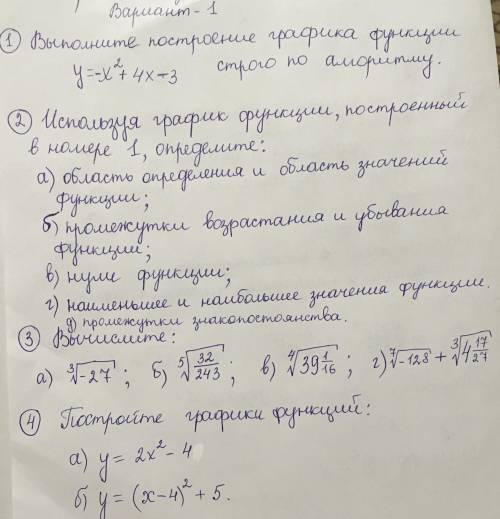 Вариант-1
① Выполните построение графика функции
y=-x²+4x-3 строго по алгоритму.
② Используя график функции, построенный
в номере 1, определите:
а) область определения и область значений
функции;
б) промежутки возрастания и убывания
функции;
в) нули функции;
г) наименьшее и наибольшее значения функции.
д) промежутки знакопостоянства.
③ Вычислите:
а) ∛-27; б) ⁵√32/243; в) ⁴√39 1/16; г) ⁷√-128 + ∛4 17/27
④ Постройте графики функций:
а) y = 2x² - 4
б) y = (x-4)² + 5.